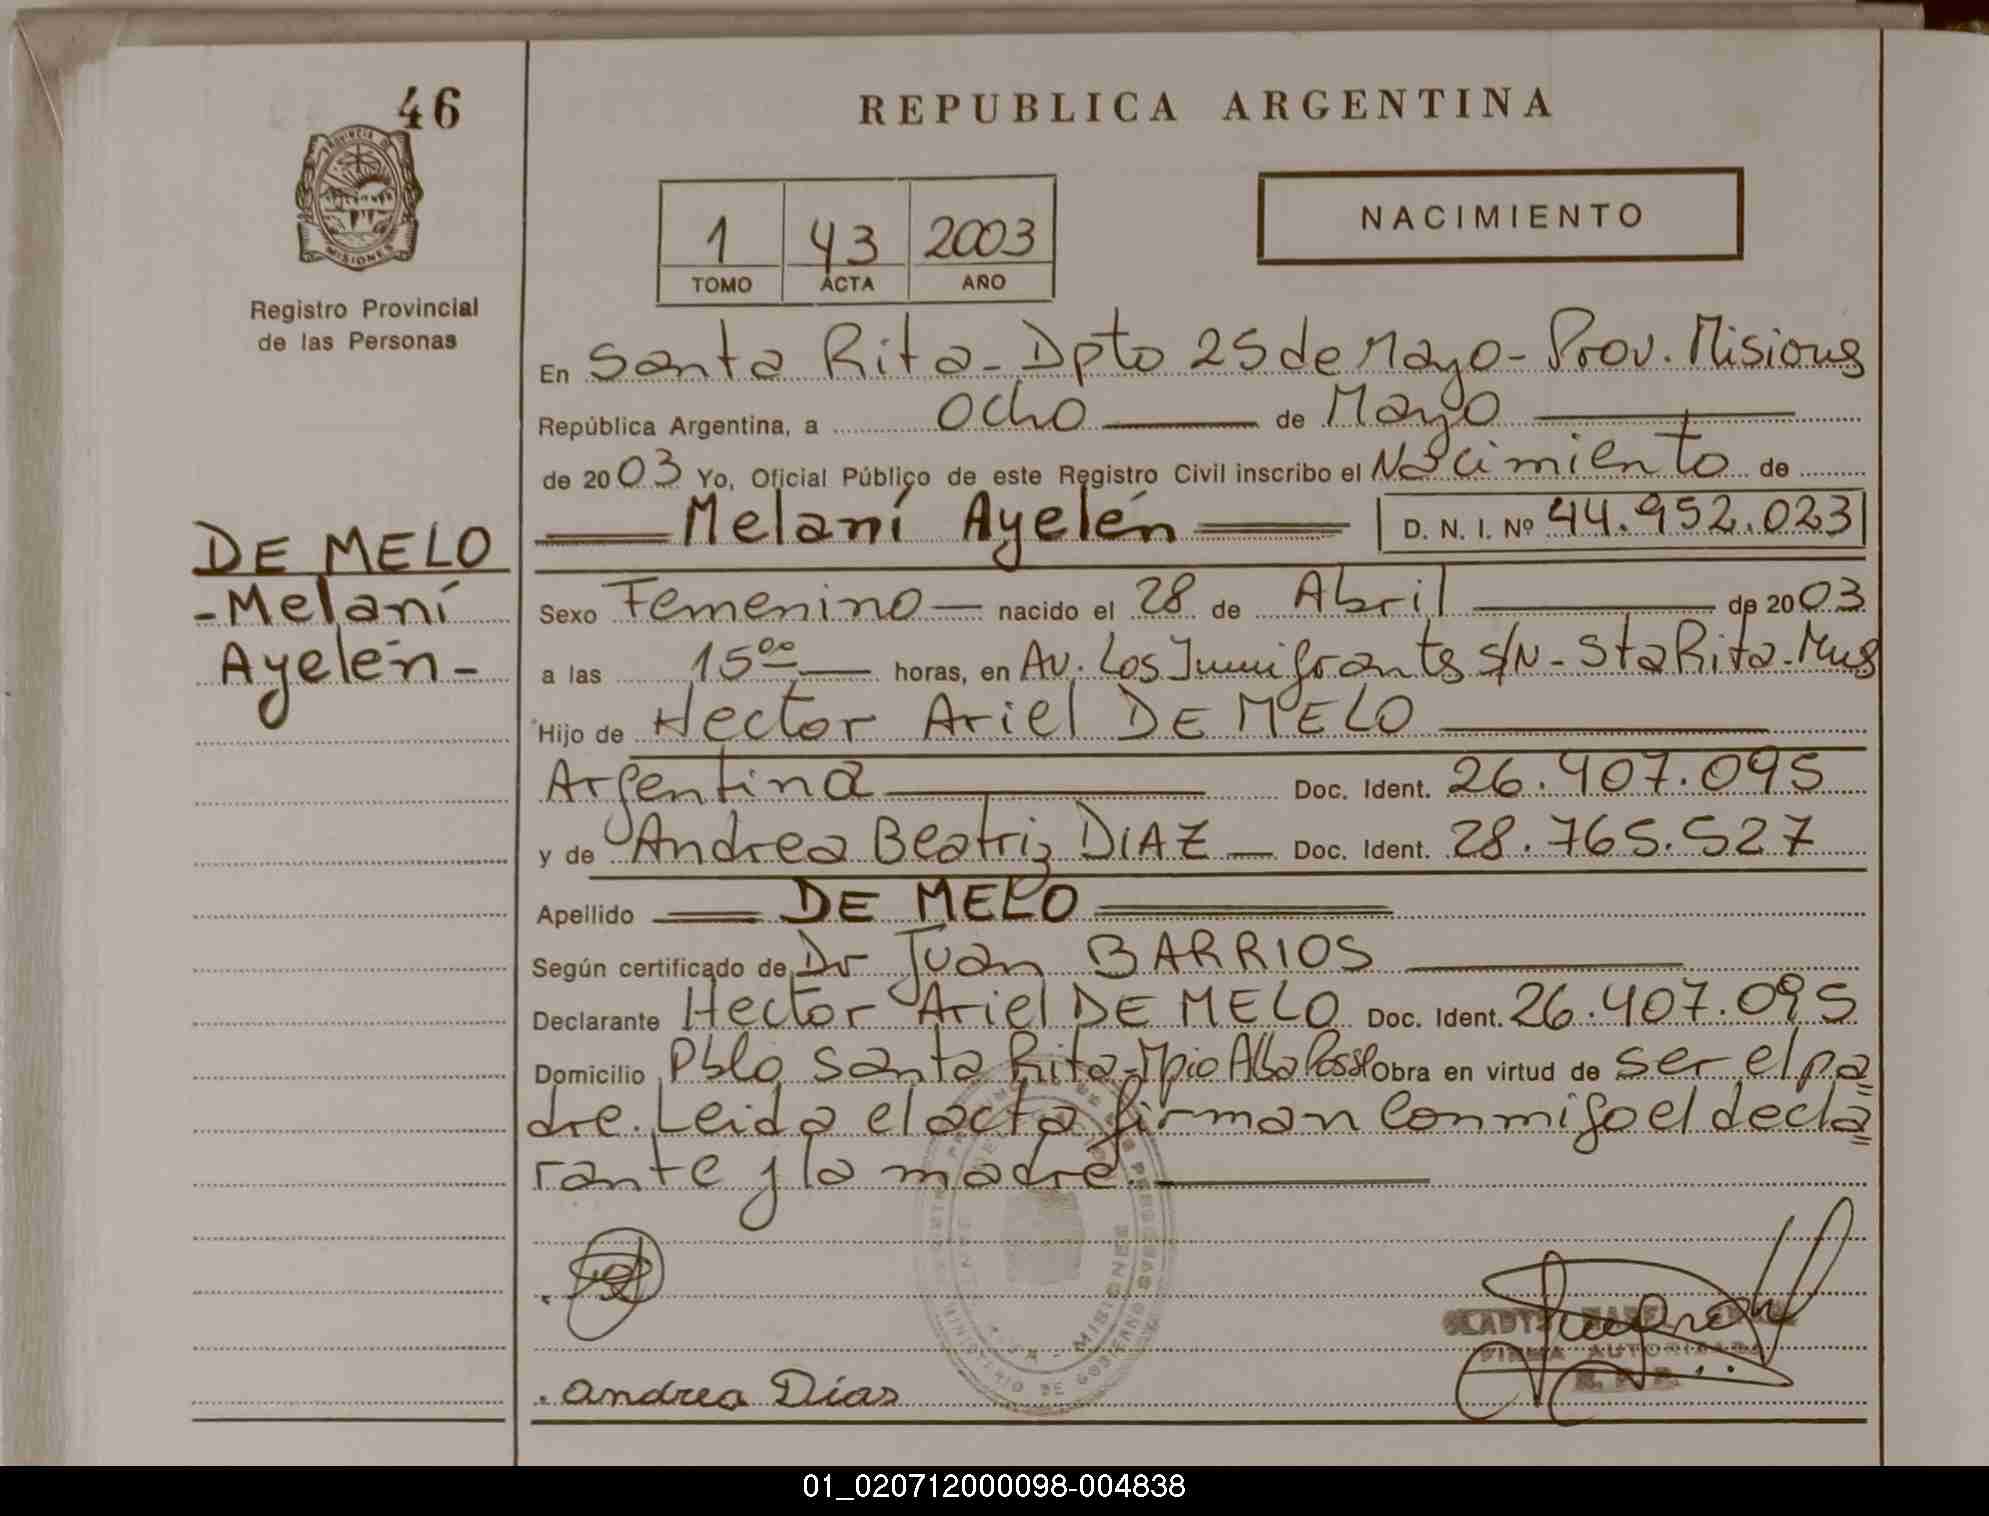 46
PROVINCIA DE
MISIONES
Registro Provincial
de las Personas
DE MELO
-Melaní
Ayelén-
REPUBLICA ARGENTINA
1 43 2003
TOMO ACTA AÑO
NACIMIENTO
En Santa Rita - Dpto 25 de Mayo - Prov. Misiones
República Argentina, a Ocho de Mayo
de 2003 Yo, Oficial Público de este Registro Civil inscribo el Nacimiento de
Melaní Ayelén D. N. I. Nº 44.952.023
Sexo Femenino nacido el 28 de Abril de 2003
a las 15ºº horas, en Av. Los Inmigrantes S/N - Sta Rita - Mnes
Hijo de Hector Ariel DE MELO
Argentina Doc. Ident. 26.407.095
y de Andrea Beatriz DIAZ Doc. Ident. 28.765.527
Apellido DE MELO
Según certificado de Dr Juan BARRIOS
Declarante Hector Ariel DE MELO Doc. Ident. 26.407.095
Domicilio Pblo Santa Rita - Mpio Alba Posse Obra en virtud de ser el pa
dre. Leida el acta firman conmigo el decla
rante y la madre.
MISIONES
MINISTERIO DE GOBIERNO
GLADYS
FIRMA AUTORIZADA
R. P. P.
. andrea Dias
01_020712000098-004838